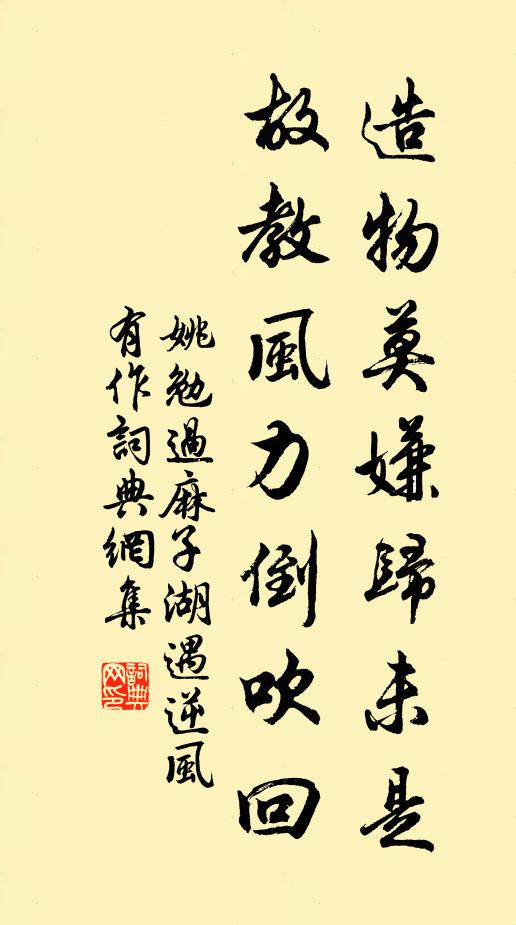 造物莫嫌歸未是
故教風力倒吹回
姚勉過麻子湖遇逆風
有作詞典網集
詞典網印